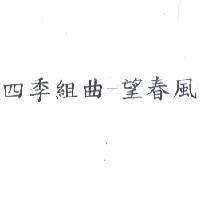 四季組曲-望春風